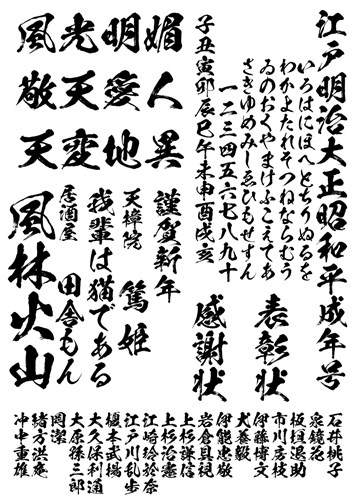 江戸明治大正昭和平成年号
いろはにほへとちりぬるを
わかよたれそつねならむう
ゐのおくやまけふこえてあ
さきゆめみしゑひもせすん
一二三四五六七八九十
子丑寅卯辰巳午未申酉戌亥
風光明媚
敬天愛人
天変地異
表彰状
感謝状
謹賀新年
天璋院
篤姫
我輩は猫である
居酒屋
田舎もん
風林火山
石井桃子
泉鏡花
板垣退助
市川房枝
伊藤博文
犬養毅
伊能忠敬
岩倉具視
上杉謙信
上杉治憲
江崎玲於奈
江戸川乱歩
榎本武揚
大久保利通
大原孫三郎
岡潔
緒方洪庵
冲中重雄